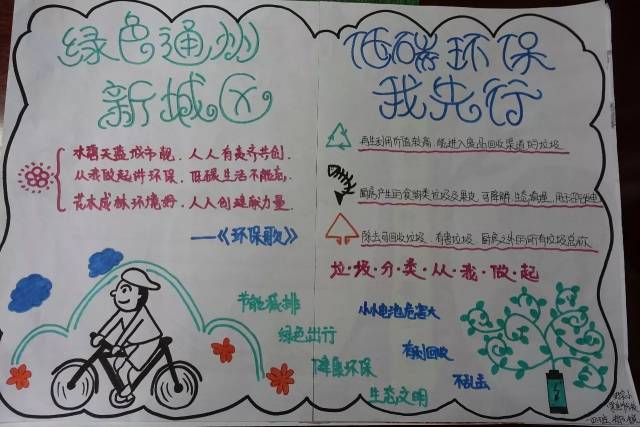 绿色通州
新城区
水碧天蓝城市靓，人人有责齐共创，
从我做起伴环保，低碳生活不能忘，
花木成林环境好，人人创建献力量．
——《环保歌》
节能减排
绿色出行
降臭环保
生态文明
低碳环保
我先行
再生利用价值较高，能进入废品回收渠道的垃圾
厨房产生的食物类垃圾及果皮，可降解
除去可回收垃圾、有害垃圾、厨房之外的所有垃圾总称
垃·圾·分·类·从·我·做·起
小小电池危害大
有利回收
不乱丢